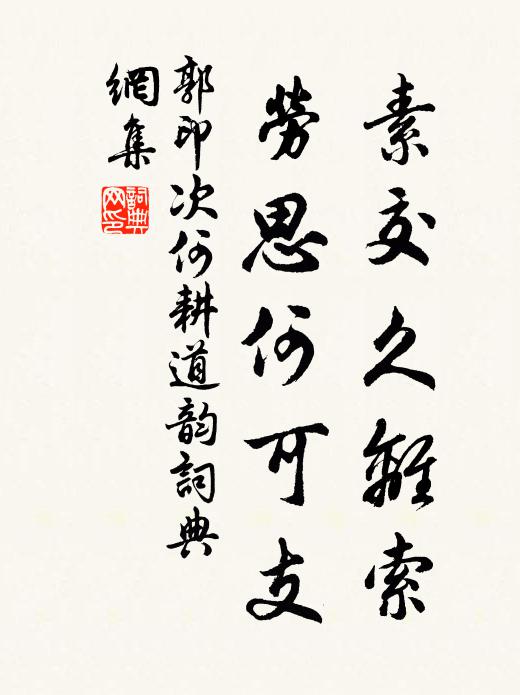 素交久離索
勞思何可支
郭印次何耕道韵詞典
網集
詞典网印